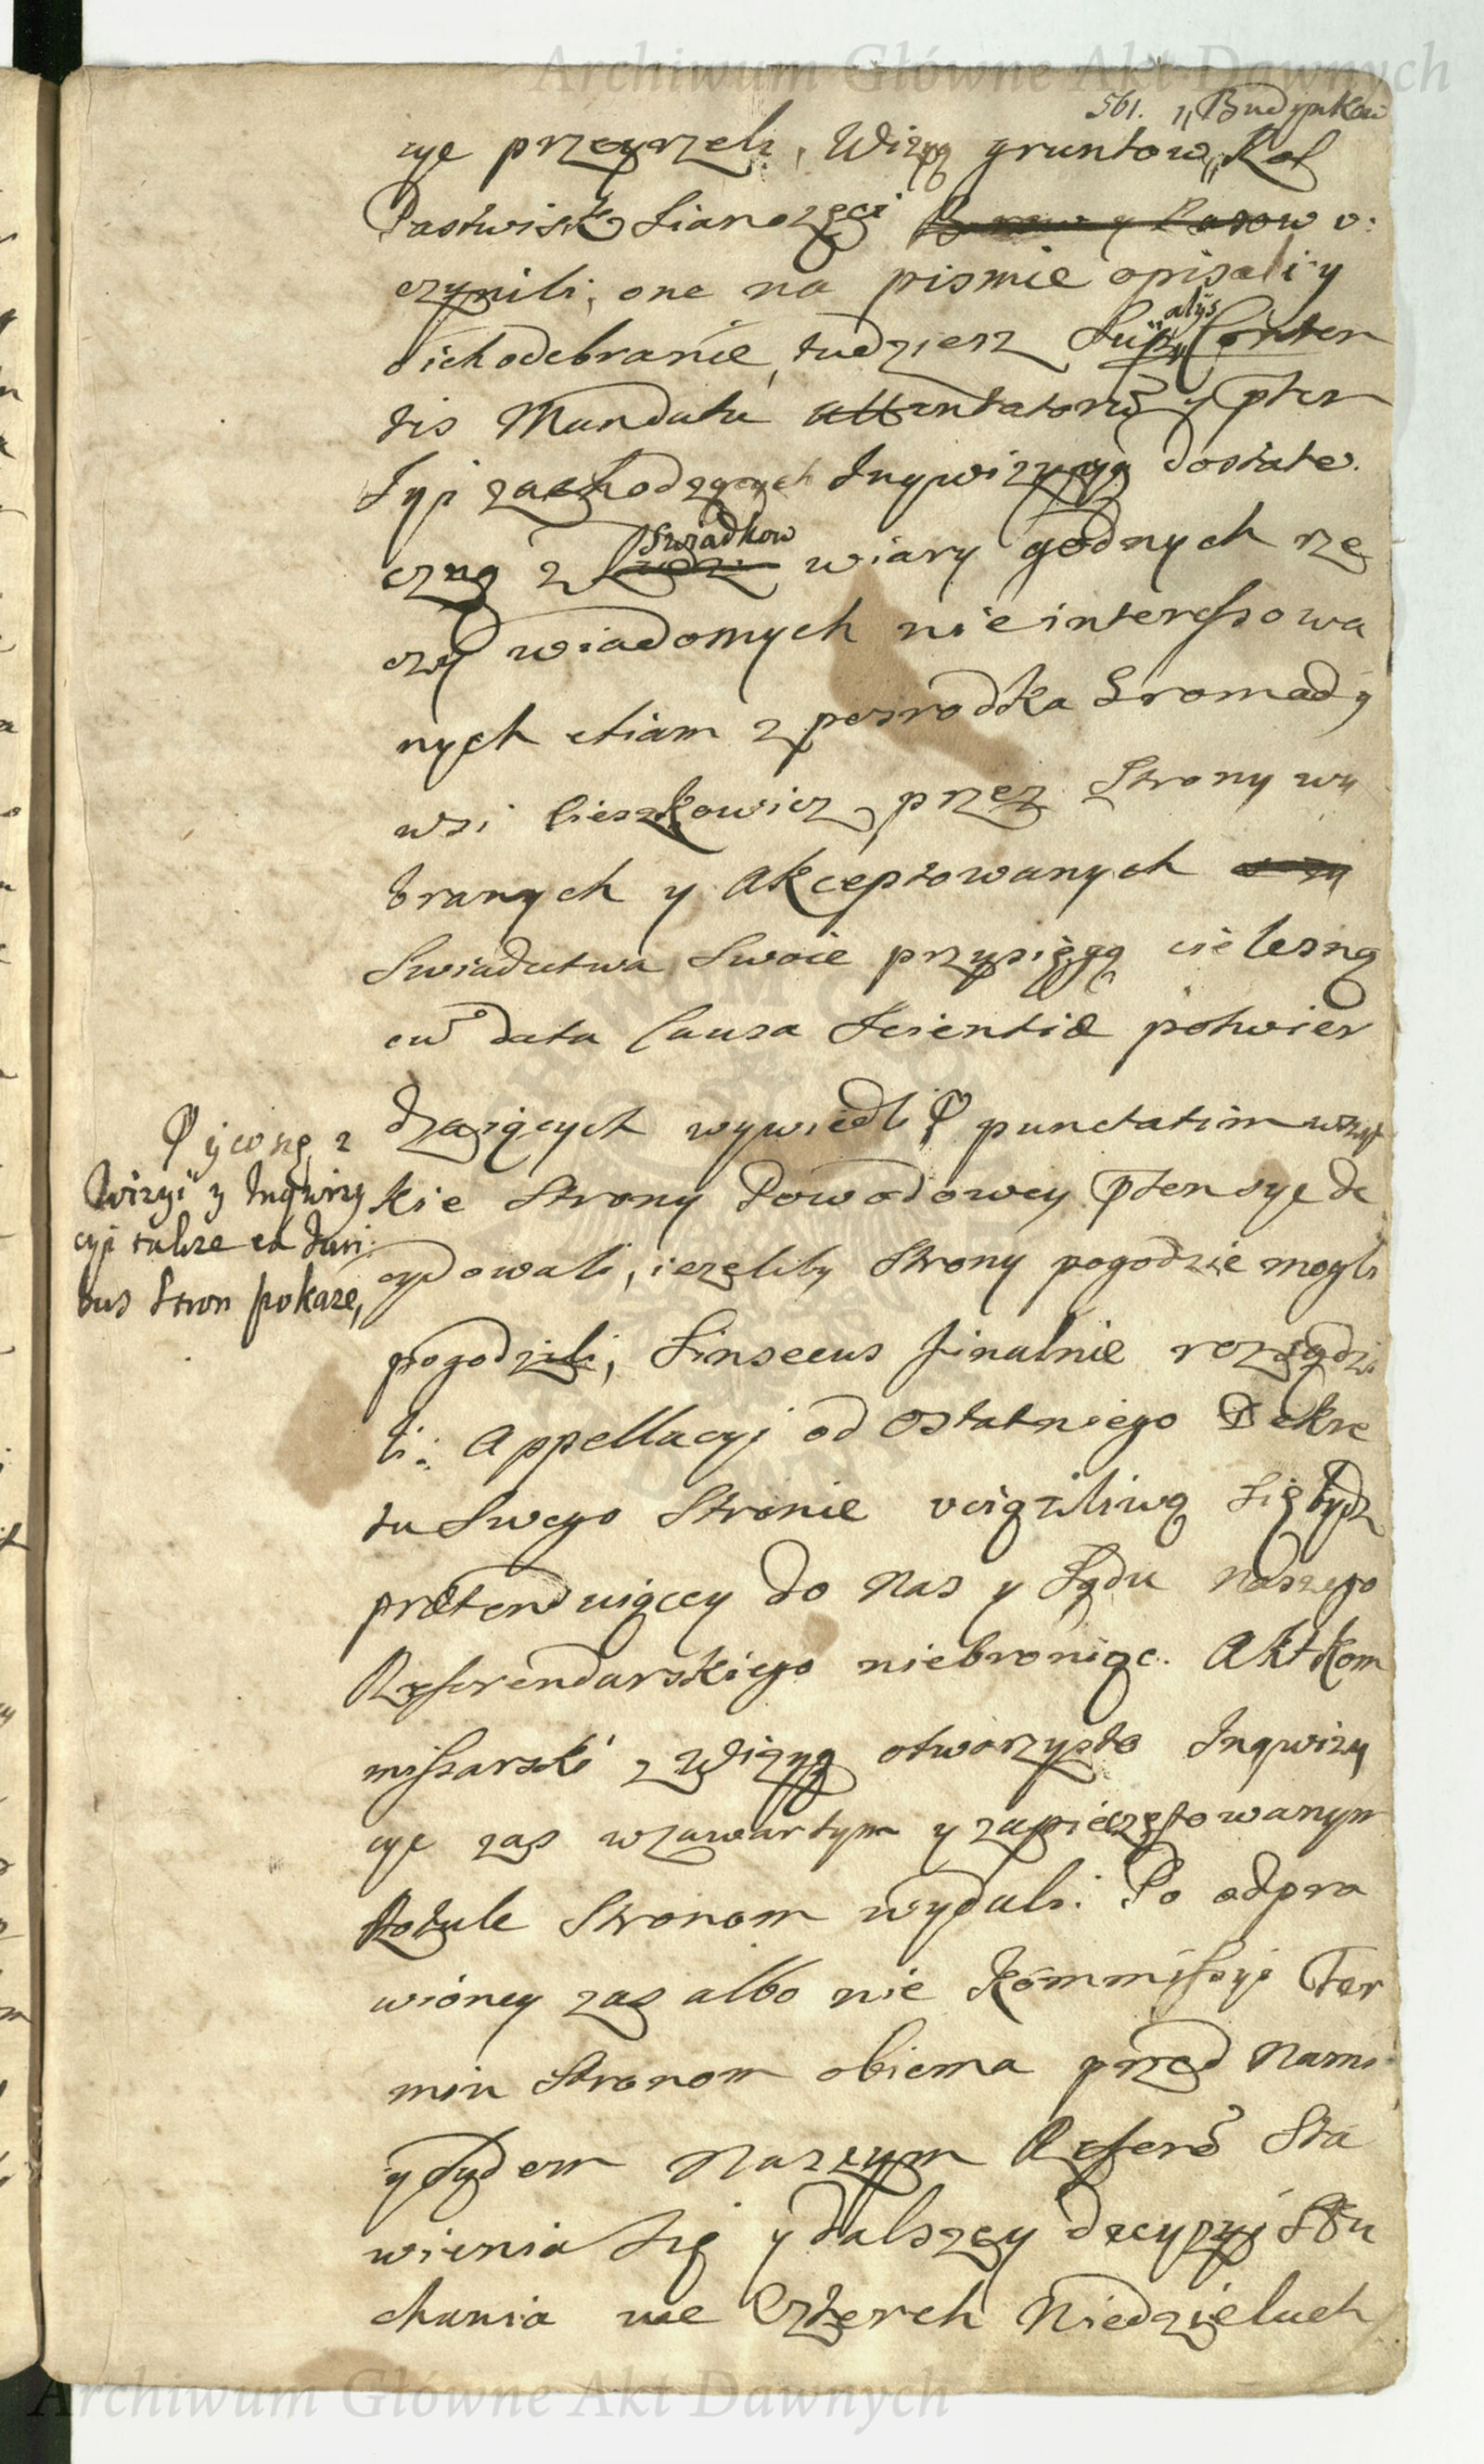 Archiwum Główne Akt Dawnych
561. „Budynkow
cye przeyrzeli, Wizyą gruntow„ Rol
Pastwisk Sianozęci y Lasow v:
czynili, one na pismie opisali y
odebranie, tudziesz Sup„ „alys Conten
tis Mandatu attentatorũ y pten
syi zachodzących Inqwizycyą dostate
czną z Swiadkow wiary godnych rze
czy wiadomych nieinteressowa
nych etiam z posrodka Gromady
wsi Cieszkowicz, przez Strony wy
branych y Akceptowanych
Swiadectwa Swoie przysięgą cielesną
cũ data Causa Scientiæ potwier
dzaiących wywiedli punctatim wszyt
kie Strony Powodowey ptensye de
cydowali, ieżeliby Strony pogodzić mogli
pogodzili, Sinsecus finalnie rozsądzi
li: Appellacyi od ostatniego Dekre
tu Swego Stronie vciążliwą Się bydz
prætenduiącey do Nas y Sądu Naszego
Referendarskiego niebroniąc. Akt Kom
missarski z Wizyą otworzysto Inqwizy
cye zas w zawartym y zapieczętowanym
Rotule Stronom wydali. Po odpra
wioney zas albo nie Kommissyi Ter
min Stronom obiema przed Nami
y Sądem Naszym Referẽ Sta
wienia Się y dalszey decyzyi Słu
chania we Czterech Niedzielach
y co się z
Wizyi y Inqwizy
cyi także
bus Stron pokaże,
Archiwum Główne Akt Dawnych